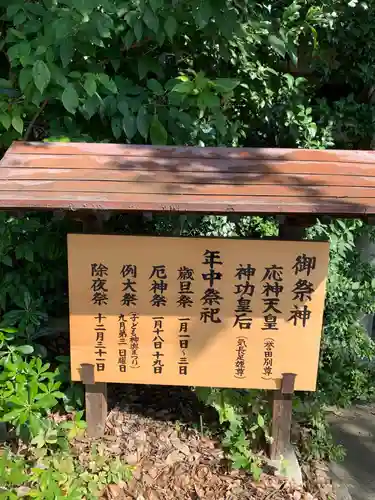 御祭神
応神天皇（誉田別尊）
神功皇后（気長足姫尊）
年中祭祀
歳旦祭 一月一日～三日
厄神祭 一月十八日十九日
例大祭 九月第三日曜日（子ども神輿巡行）
除夜祭 十二月三十一日